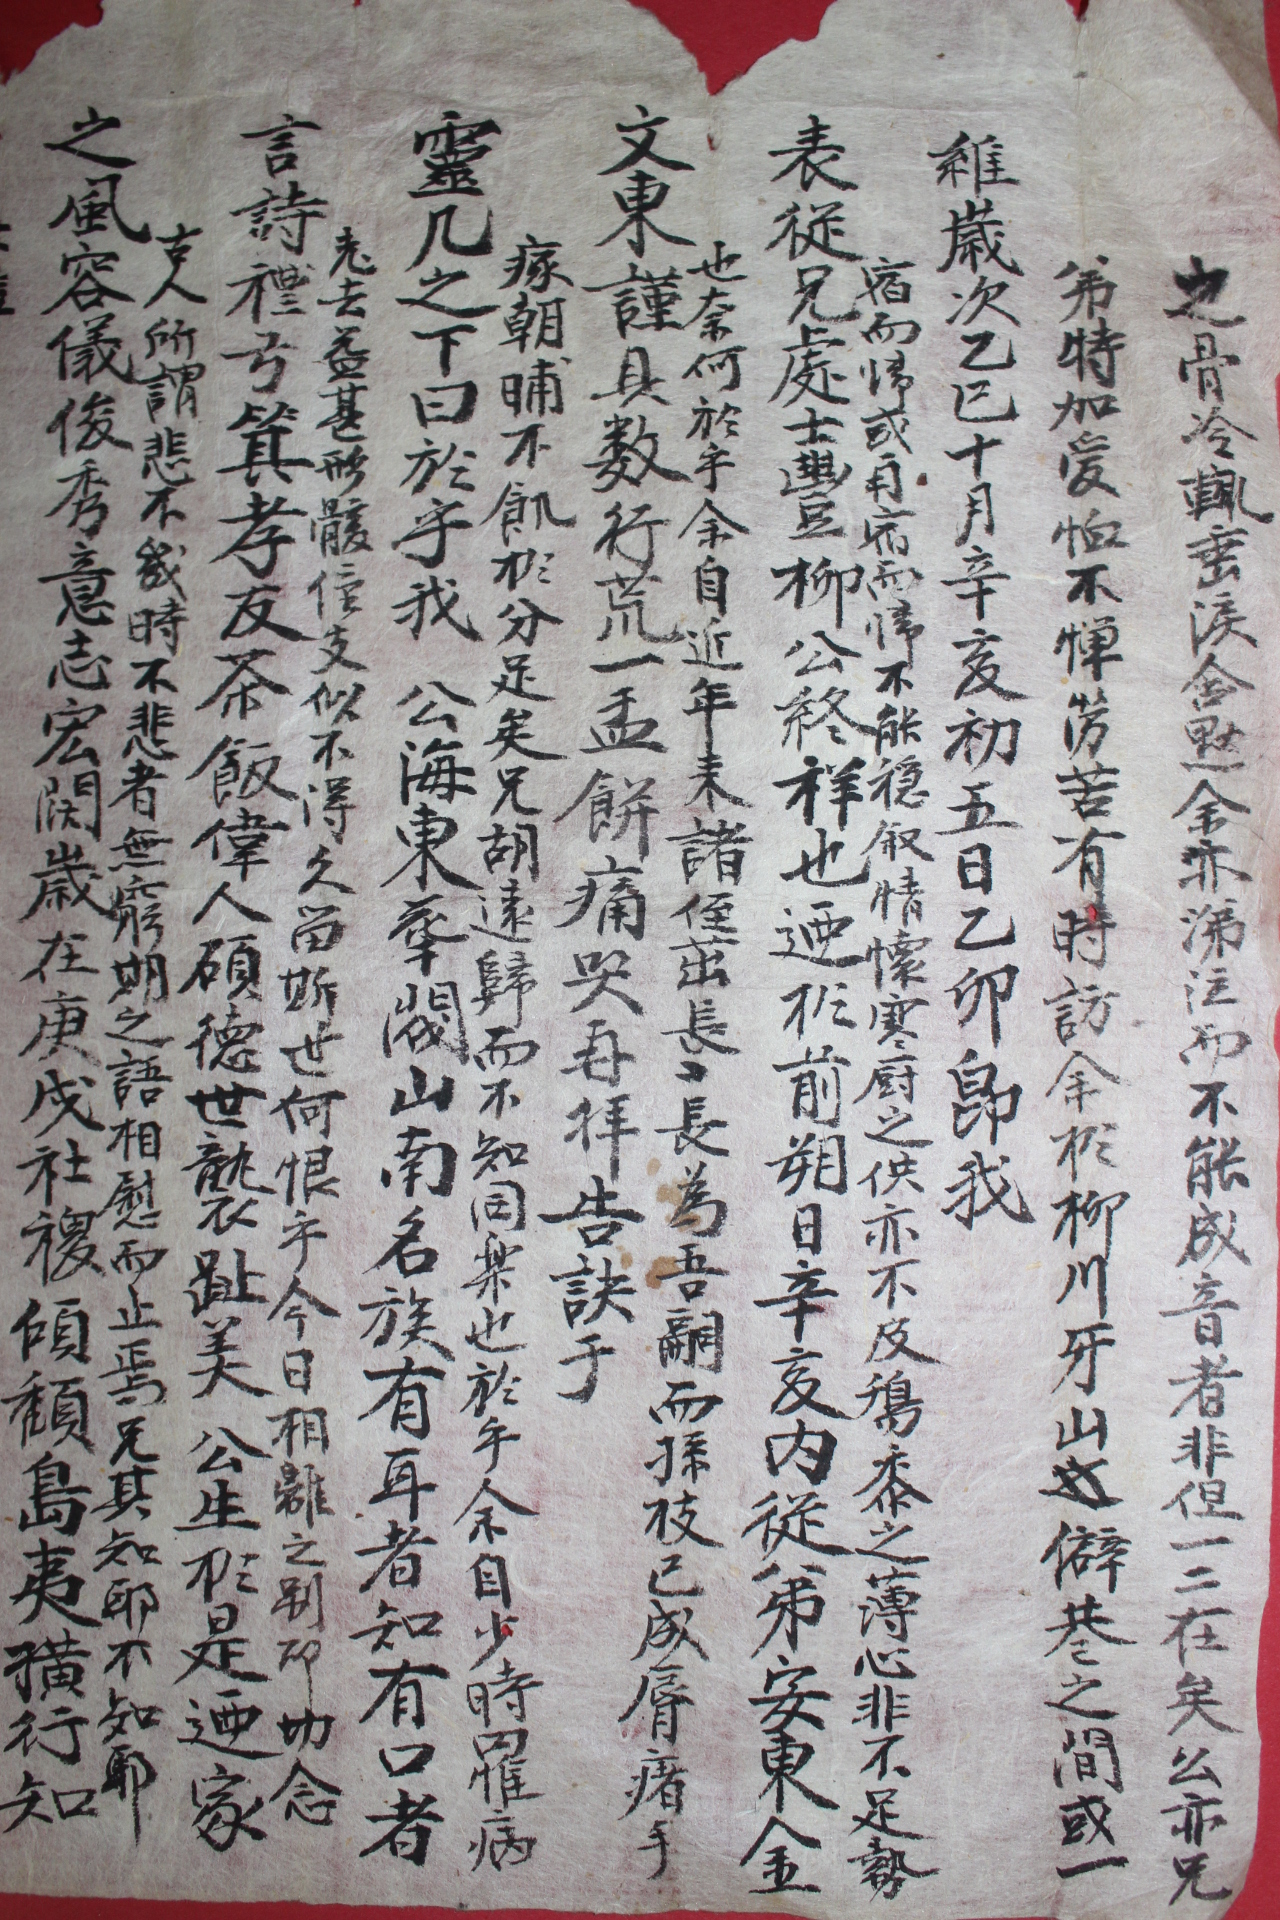 之骨冷輒垂淚含愁余亦涕泣而不能成音者非但一二在矣公亦兄
弟特加愛恤不憚勞苦有時訪余於柳川牙山之僻巷之間或一
維歲次乙巳十月辛亥初五日乙卯昴我
宿而歸或再宿而歸不能穩叙情懷寒厨之供亦不及鷄黍之薄心非不足勢
表從兄處士豊柳公終祥也廼於前朔日辛亥內從弟安東金
也奈何於乎余自近年來諸侄茁長長為吾嗣而孫枝已成唇瘏手
文東謹具数行荒一盂餅痛哭再拝告訣于
瘃朝晡不飢於分足矣兄胡遠歸而不知同樂也於乎余自少時罹病
靈几之下曰於乎我 公海東華閥山南名族有耳者知有口者
老去益甚形骸信支似不得久留斯世何恨乎今日相離之別即切念
言詩禮弓箕孝友茶飯偉人碩德世襲趾美 公生於是廼家
古人所謂悲不幾時不悲者無窮期之語相慰而止焉兄其知耶不知耶
之風容儀俊秀意志宏闊歲在庚戌社稷傾頹島夷獷行知